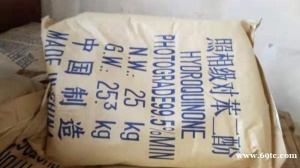 照相级对苯二酚
HYDROQUINONE
PHOTOGRADE99.5%MIN
N.W: 25 kg
G.W: 25.3 kg
中国制造
MADE IN CHINA
www.69tc.com